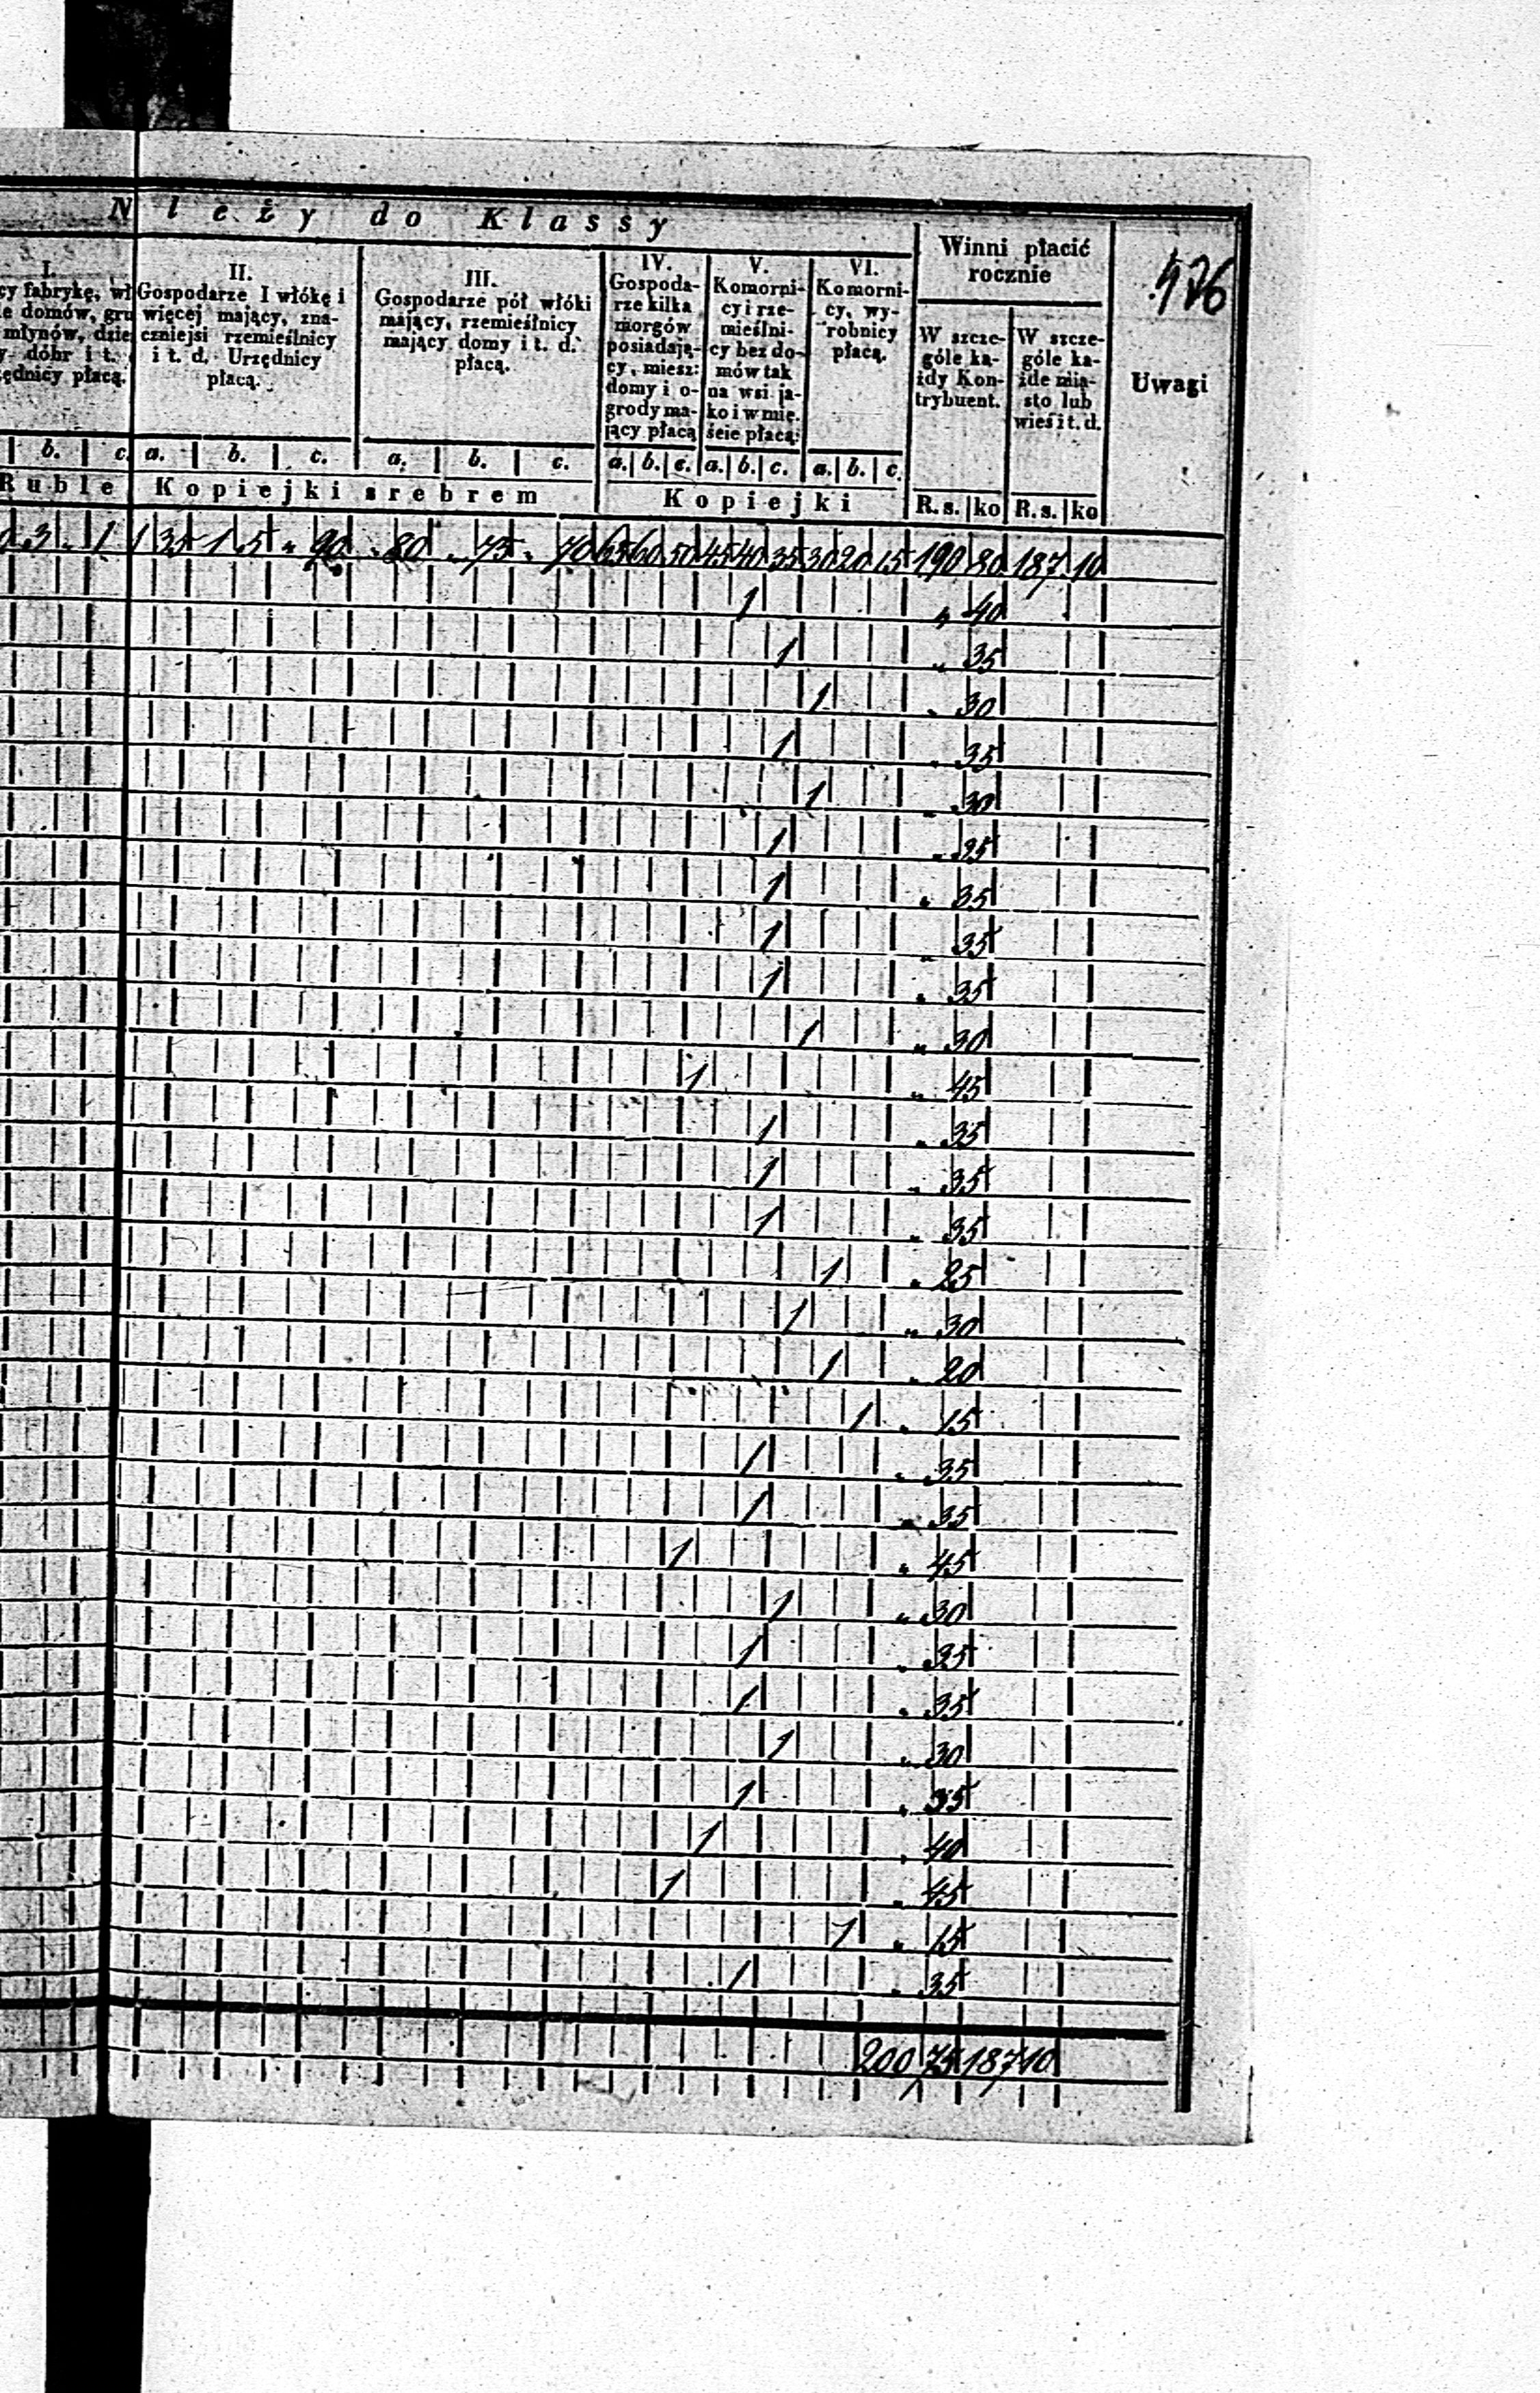 N leży do Klassy
426
I.
cy fabrykę, wł
e domów, gru
młynów, dzie
y dóbr i t.
ędnicy płacą.
II.
Gospodarze I włókę i
więcej mający, zna-
czniejsi rzemieślnicy
i t. d. Urzędnicy
płacą.
III.
Gospodarze pół włóki
mający, rzemieślnicy
mający domy i t. d.
płacą.
IV.
Gospoda-
rze kilka
morgów
posiadają-
cy, miesz:
domy i o-
grody ma-
jący płacą
V.
Komorni-
cy i rze-
mieślni-
cy bez do-
mów tak
na wsi ja-
ko i w mie-
ście płacą:
VI.
Komorni-
cy, wy-
robnicy
płacą.
Winni płacić
rocznie
W szcze-
góle ka-
żdy Kon-
trybuent.
W szcze-
góle ka-
żde mia-
sto lub
wieś i t. d.
Uwagi
b. c. a. b. c. a. b. c. a. b. c. a. b. c. a. b. c.
Ruble Kopiejki srebrem Kopiejki R. s. ko R. s. ko
3 1 1 35 1 5 90 80 75 70 65 60 50 45 40 35 30 20 15 190 80 187 10
1 " 40
1 " 35
1 " 30
1 " 35
1 " 30
1 " 35
1 " 35
1 " 35
1 " 35
1 " 30
1 " 45
1 " 35
1 " 35
1 " 35
1 " 25
1 " 30
1 " 20
1 " 15
1 " 35
1 " 35
1 " 45
1 " 30
1 " 35
1 " 35
1 " 30
1 " 35
1 " 40
1 " 45
1 " 15
1 " 35
200 75 187 10